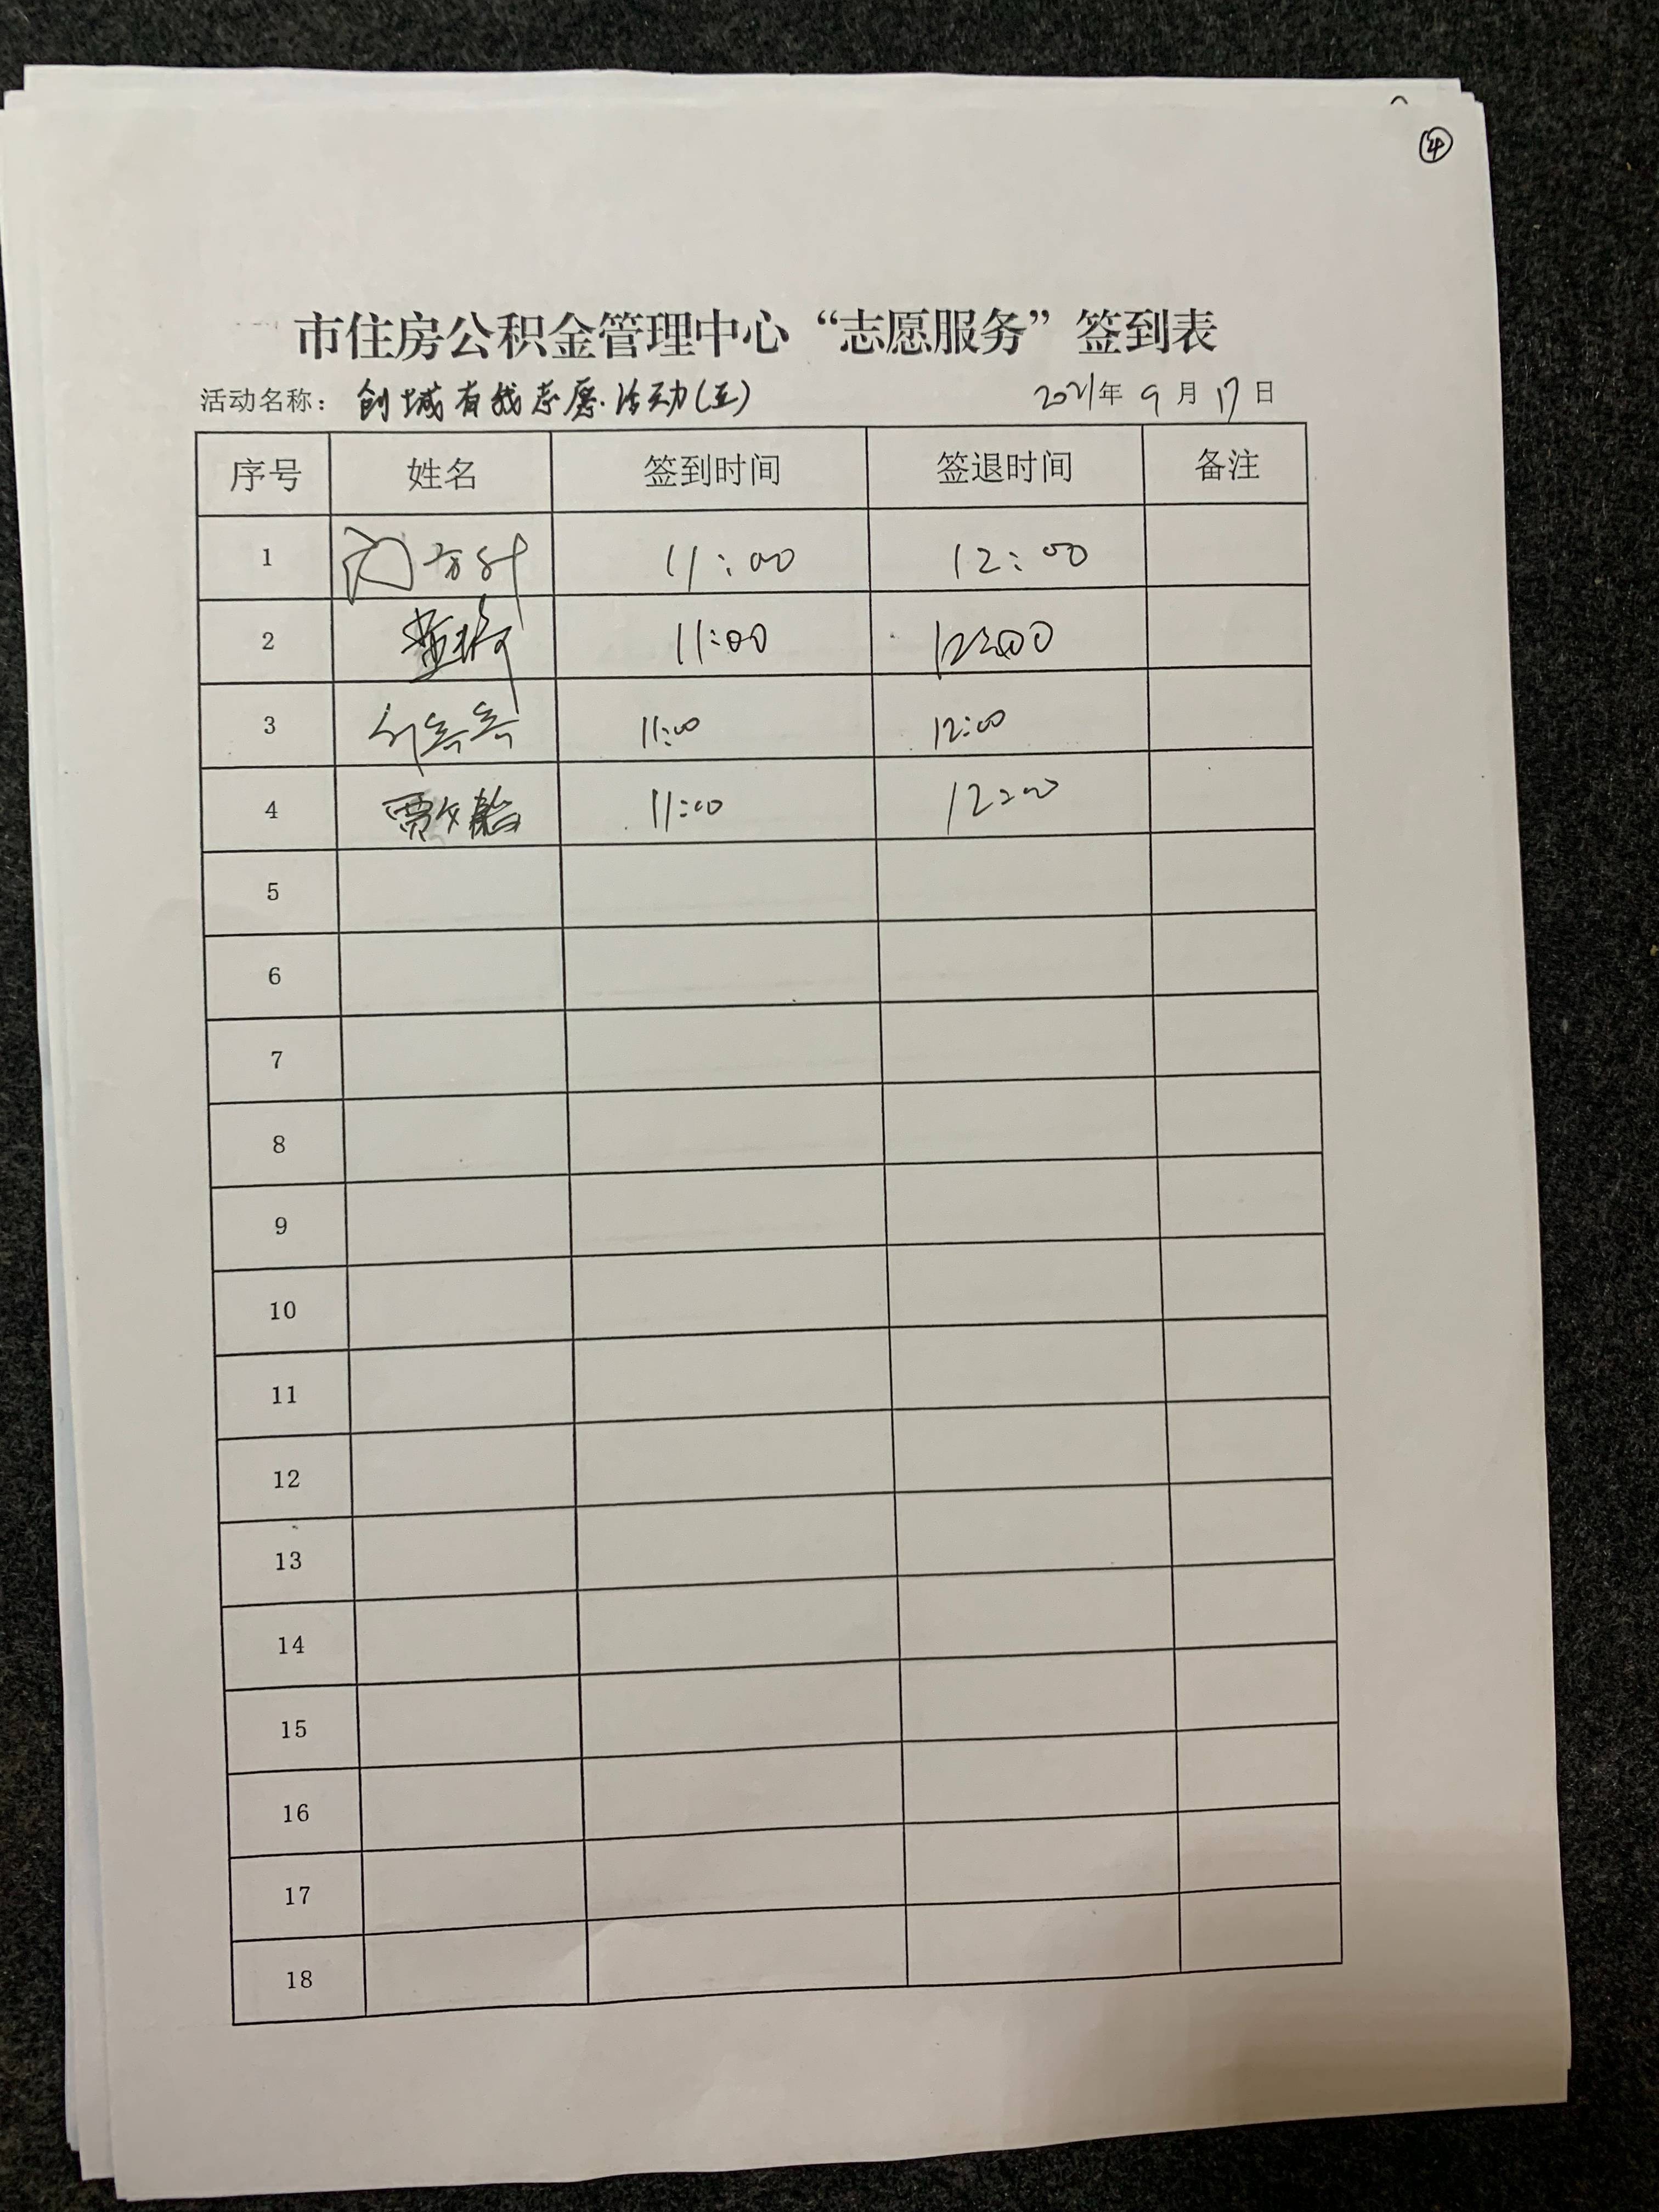 ④
市住房公积金管理中心“志愿服务”签到表
活动名称：创城有我志愿活动(五) 2021年9月17日
序号 姓名 签到时间 签退时间 备注
1 11:00 12:00
2 11:00 12:00
3 11:00 12:00
4 贾 11:00 12:00
5
6
7
8
9
10
11
12
13
14
15
16
17
18